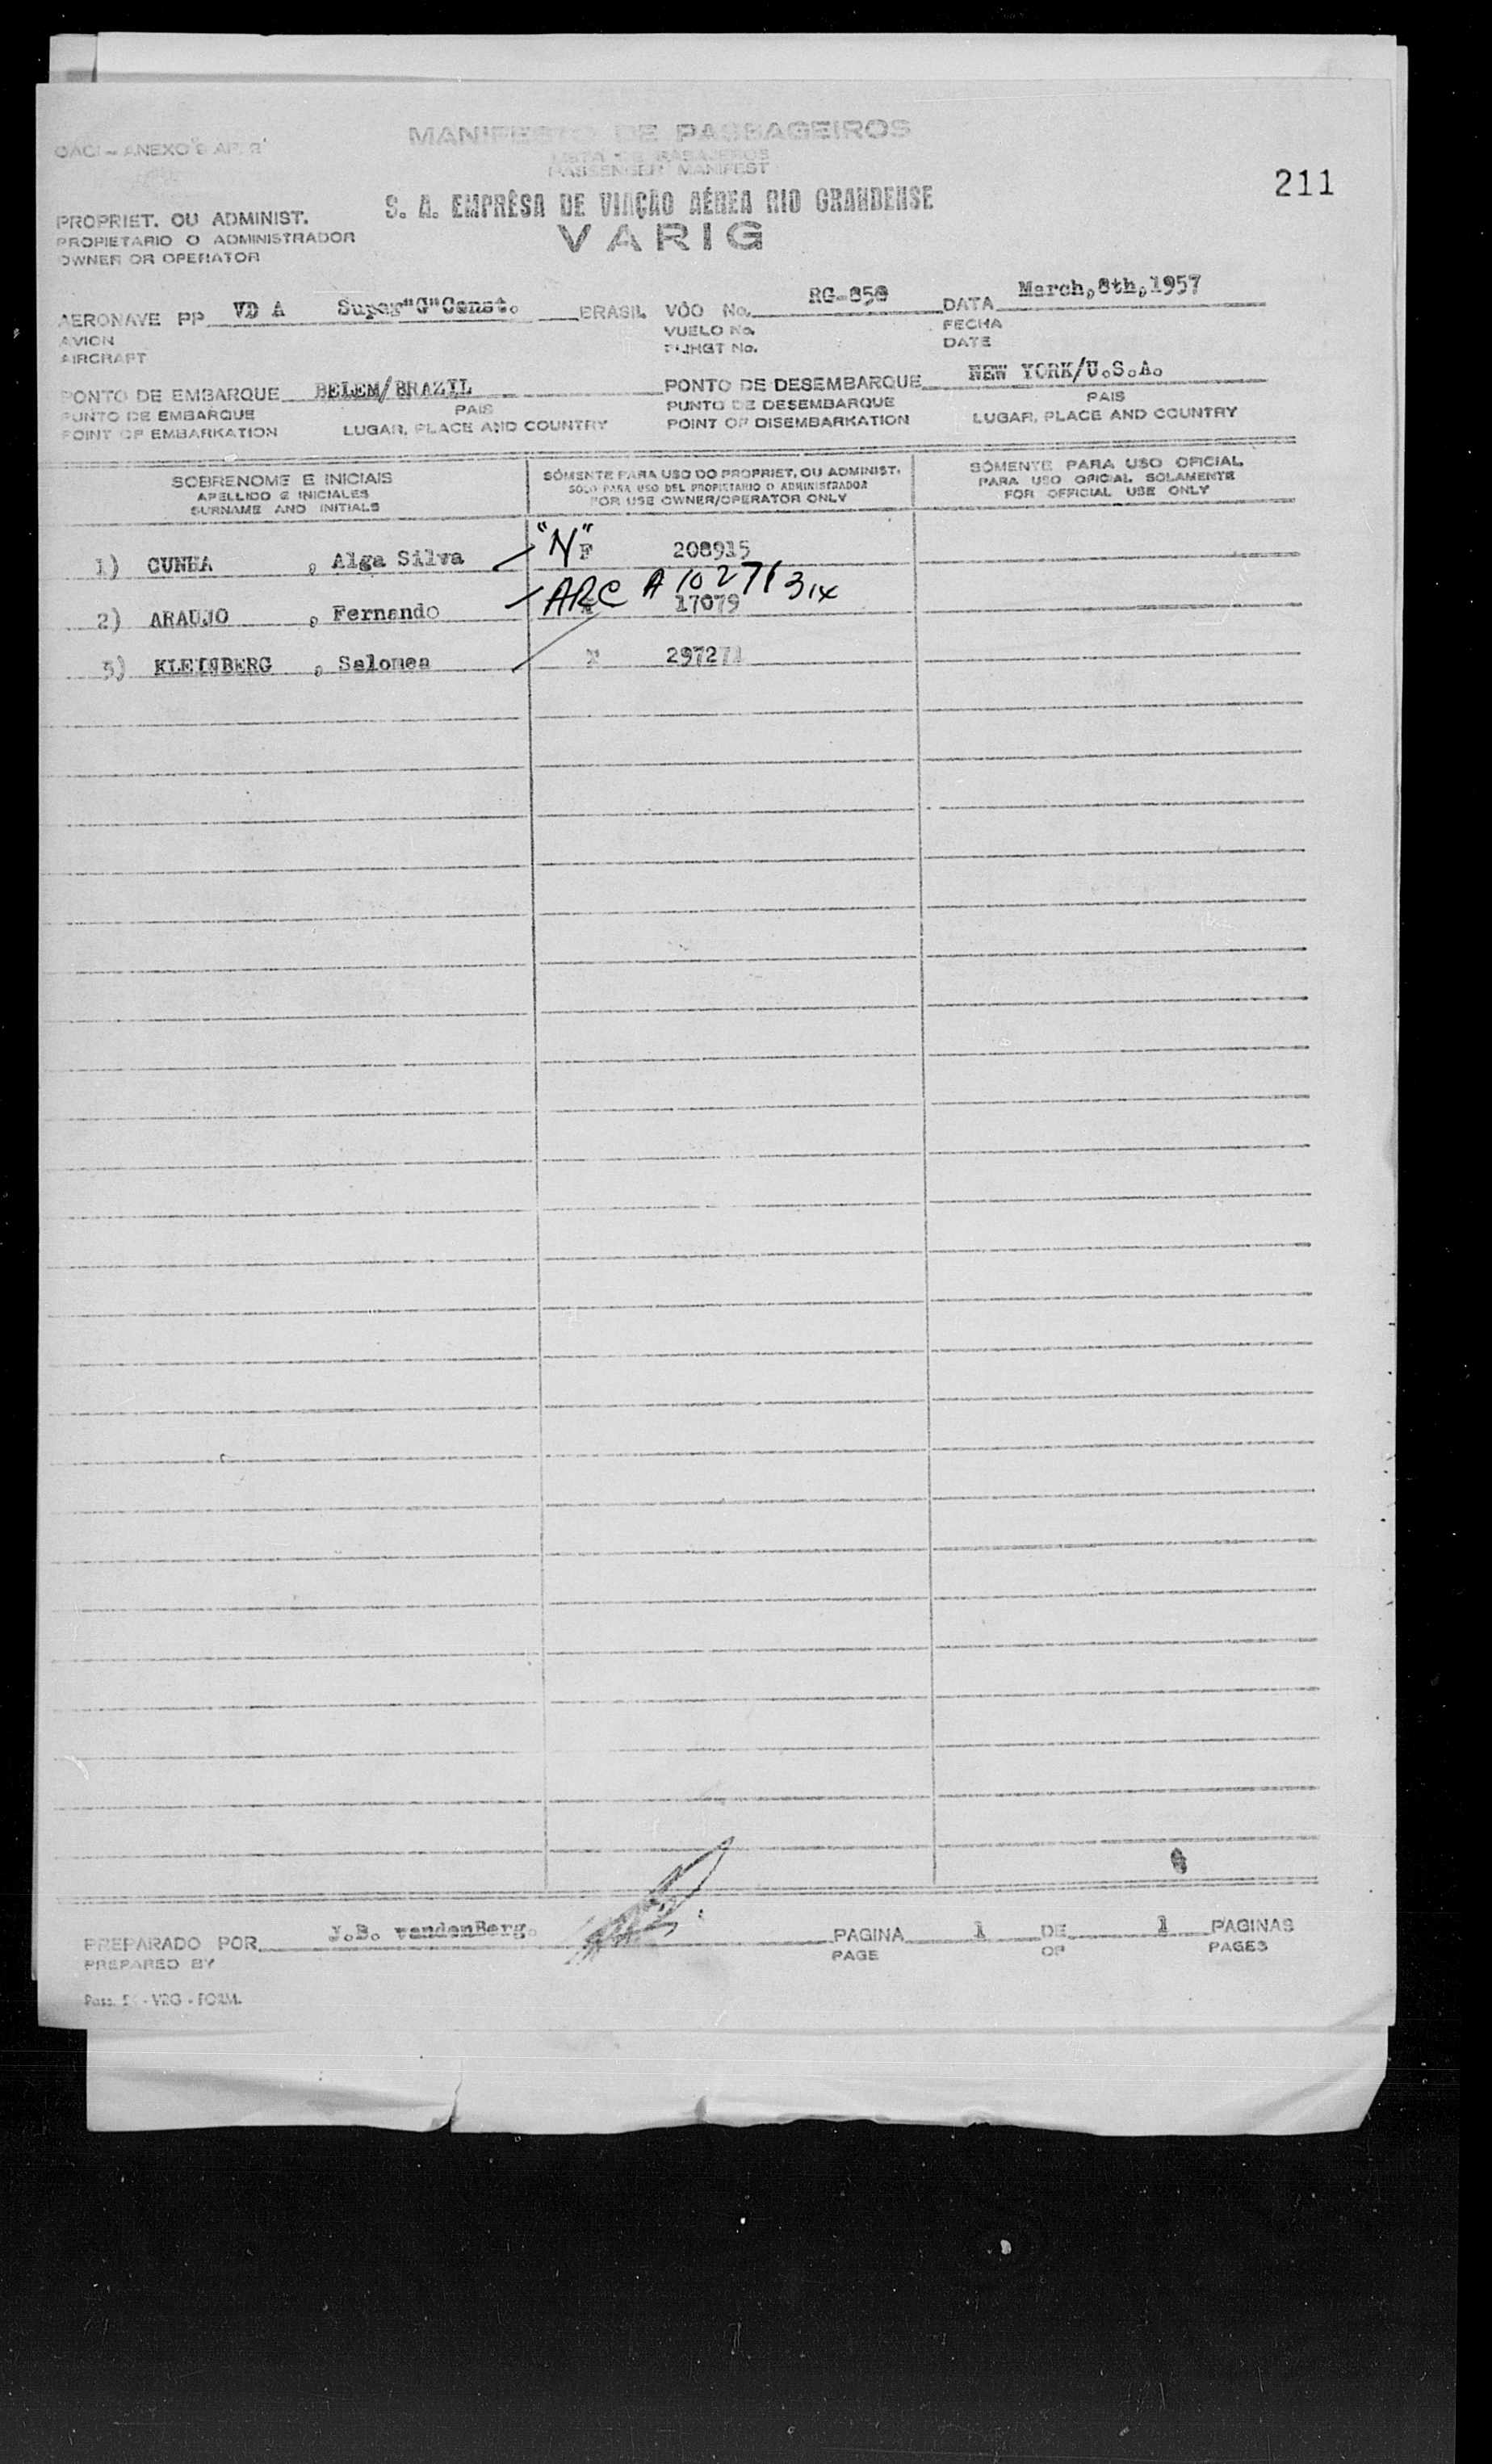 MANIFESTO DE PASSAGEIROS
OACI - ANEXO 9 AP.
LISTA DE PASAJEROS
PASSENGER MANIFEST
211
S. A. EMPRÊSA DE VIAÇÃO AÉREA RIO GRANDENSE
VARIG
PROPRIET. OU ADMINIST.
PROPIETARIO O ADMINISTRADOR
OWNER OR OPERATOR
AERONAVE PP VD A Super"G"Const. BRASIL VÔO No. RG-850 DATA March,8th,1957
AVION VUELO No. FECHA
AIRCRAFT FLIHGT No. DATE
PONTO DE EMBARQUE BELEM/BRAZIL PONTO DE DESEMBARQUE NEW YORK/U.S.A.
PUNTO DE EMBARQUE PAIS PUNTO DE DESEMBARQUE PAIS
POINT OF EMBARKATION LUGAR, PLACE AND COUNTRY POINT OF DISEMBARKATION LUGAR, PLACE AND COUNTRY
SOBRENOME E INICIAIS SÓMENTE PARA USO DO PROPRIET. OU ADMINIST. SÓMENTE PARA USO OFICIAL
APELLIDO E INICIALES SOLO PARA USO DEL PROPIETARIO O ADMINISTRADOR PARA USO OFICIAL SOLAMENTE
SURNAME AND INITIALS FOR USE OWNER/OPERATOR ONLY FOR OFFICIAL USE ONLY
1) CUNHA , Alga Silva "N" F 208915
ARC A 10 271 314
2) ARAUJO , Fernando 17079
3) KLEINBERG , Salomea 297271
PREPARADO POR J.B. vandenBerg. PAGINA 1 DE 1 PAGINAS
PREPARED BY PAGE OF PAGES
VRG - FORM.